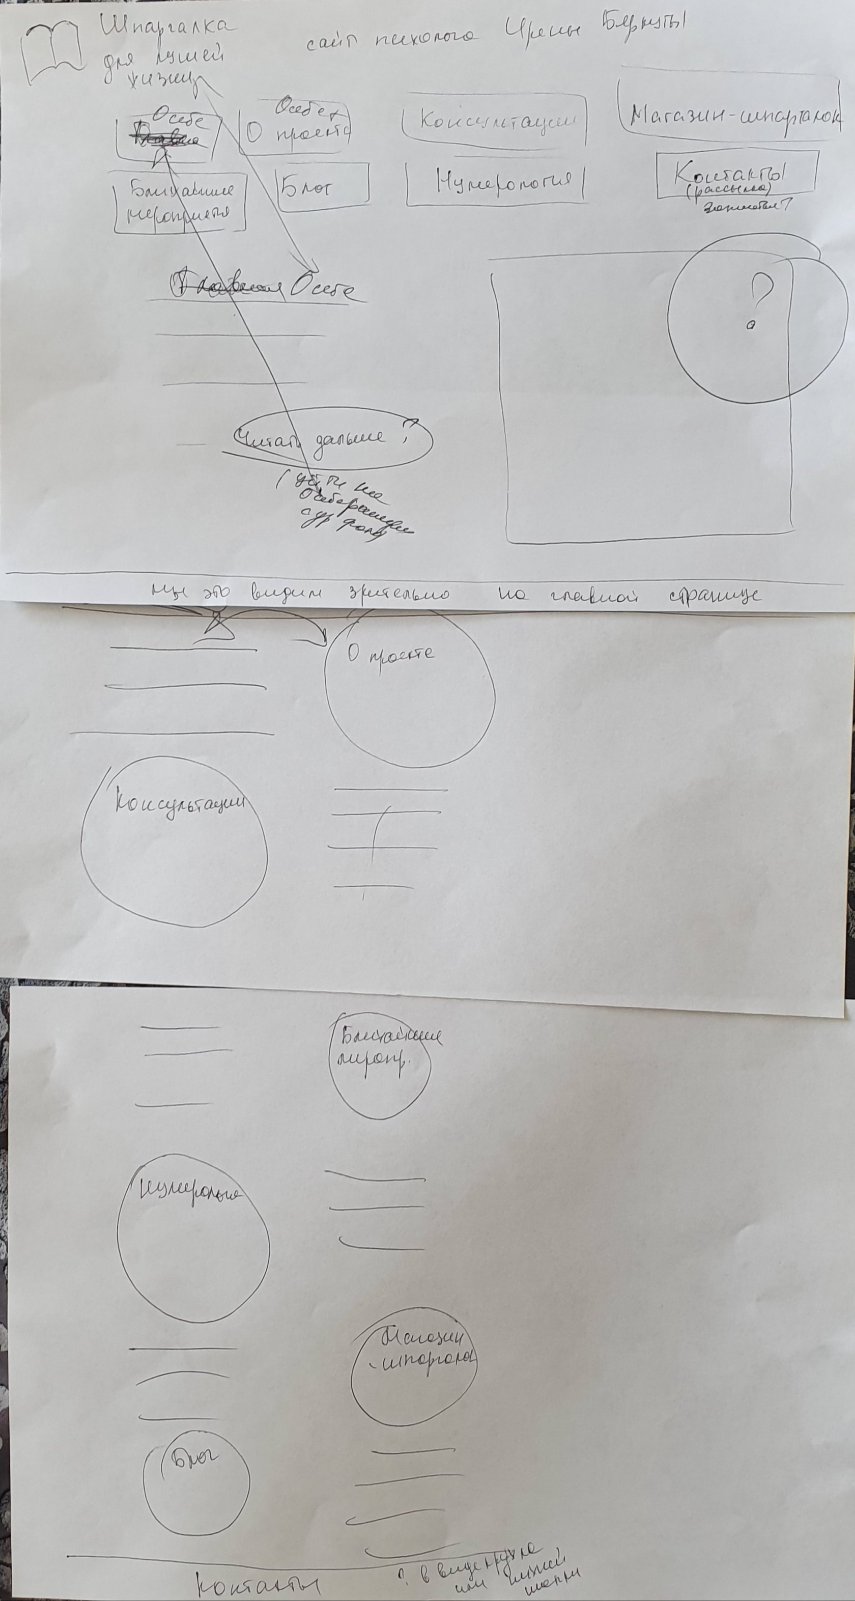 Шпаргалка
для лучшей
жизни
сайт психолога Ирены Беркуты
О себе
Главная
О себе +
О проекте
Консультации
Магазин-шпаргалок
Ближайшие
мероприятия
Блог
Нумерология
Контакты
(рассылка)
Главная О себе
?
Читать дальше?
(уйти на
страницу
мы это видим зрительно на главной странице
О проекте
Консультации
Ближайшие
меропр.
Нумерология
Магазин
-шпаргалок
Блог
Контакты
? в виде круга
или нижней
шапки